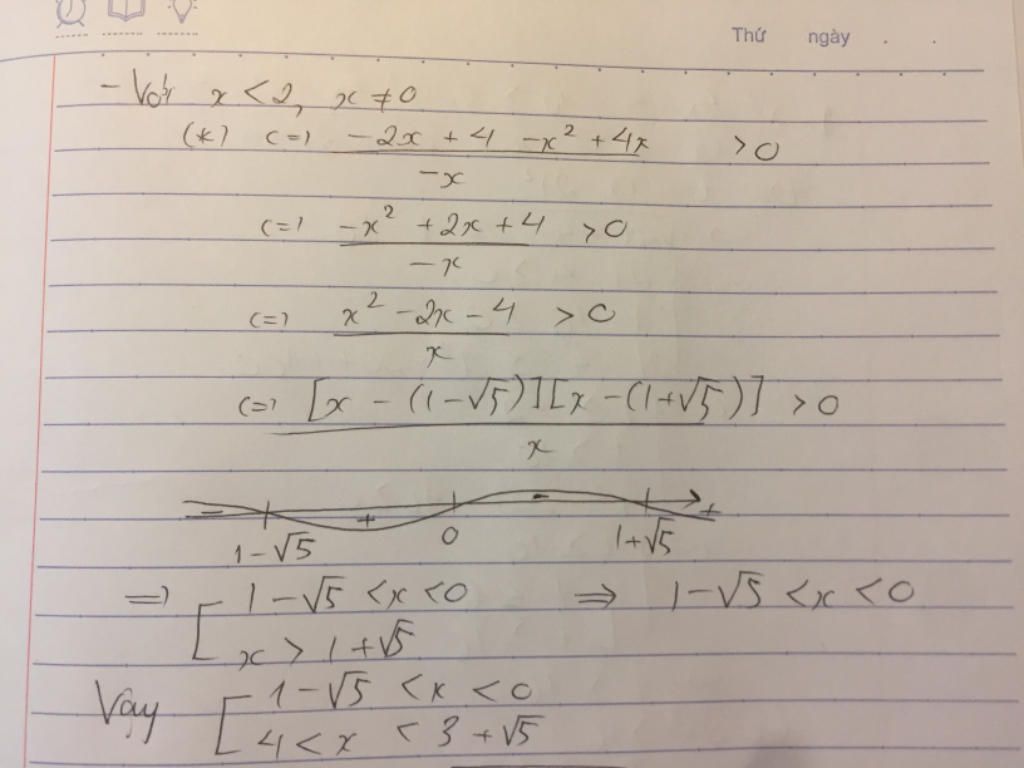 Thứ ngày . .
- Với x < 2, x ≠ 0
(*) <=> (-2x + 4 - x² + 4x)/(-x) > 0
<=> (-x² + 2x + 4)/(-x) > 0
<=> (x² - 2x - 4)/x > 0
<=> [x - (1 - √5)][x - (1 + √5)]/x > 0
- + - +
1 - √5 0 1 + √5
=> [ 1 - √5 < x < 0 => 1 - √5 < x < 0
x > 1 + √5
Vậy [ 1 - √5 < x < 0
4 < x < 3 + √5